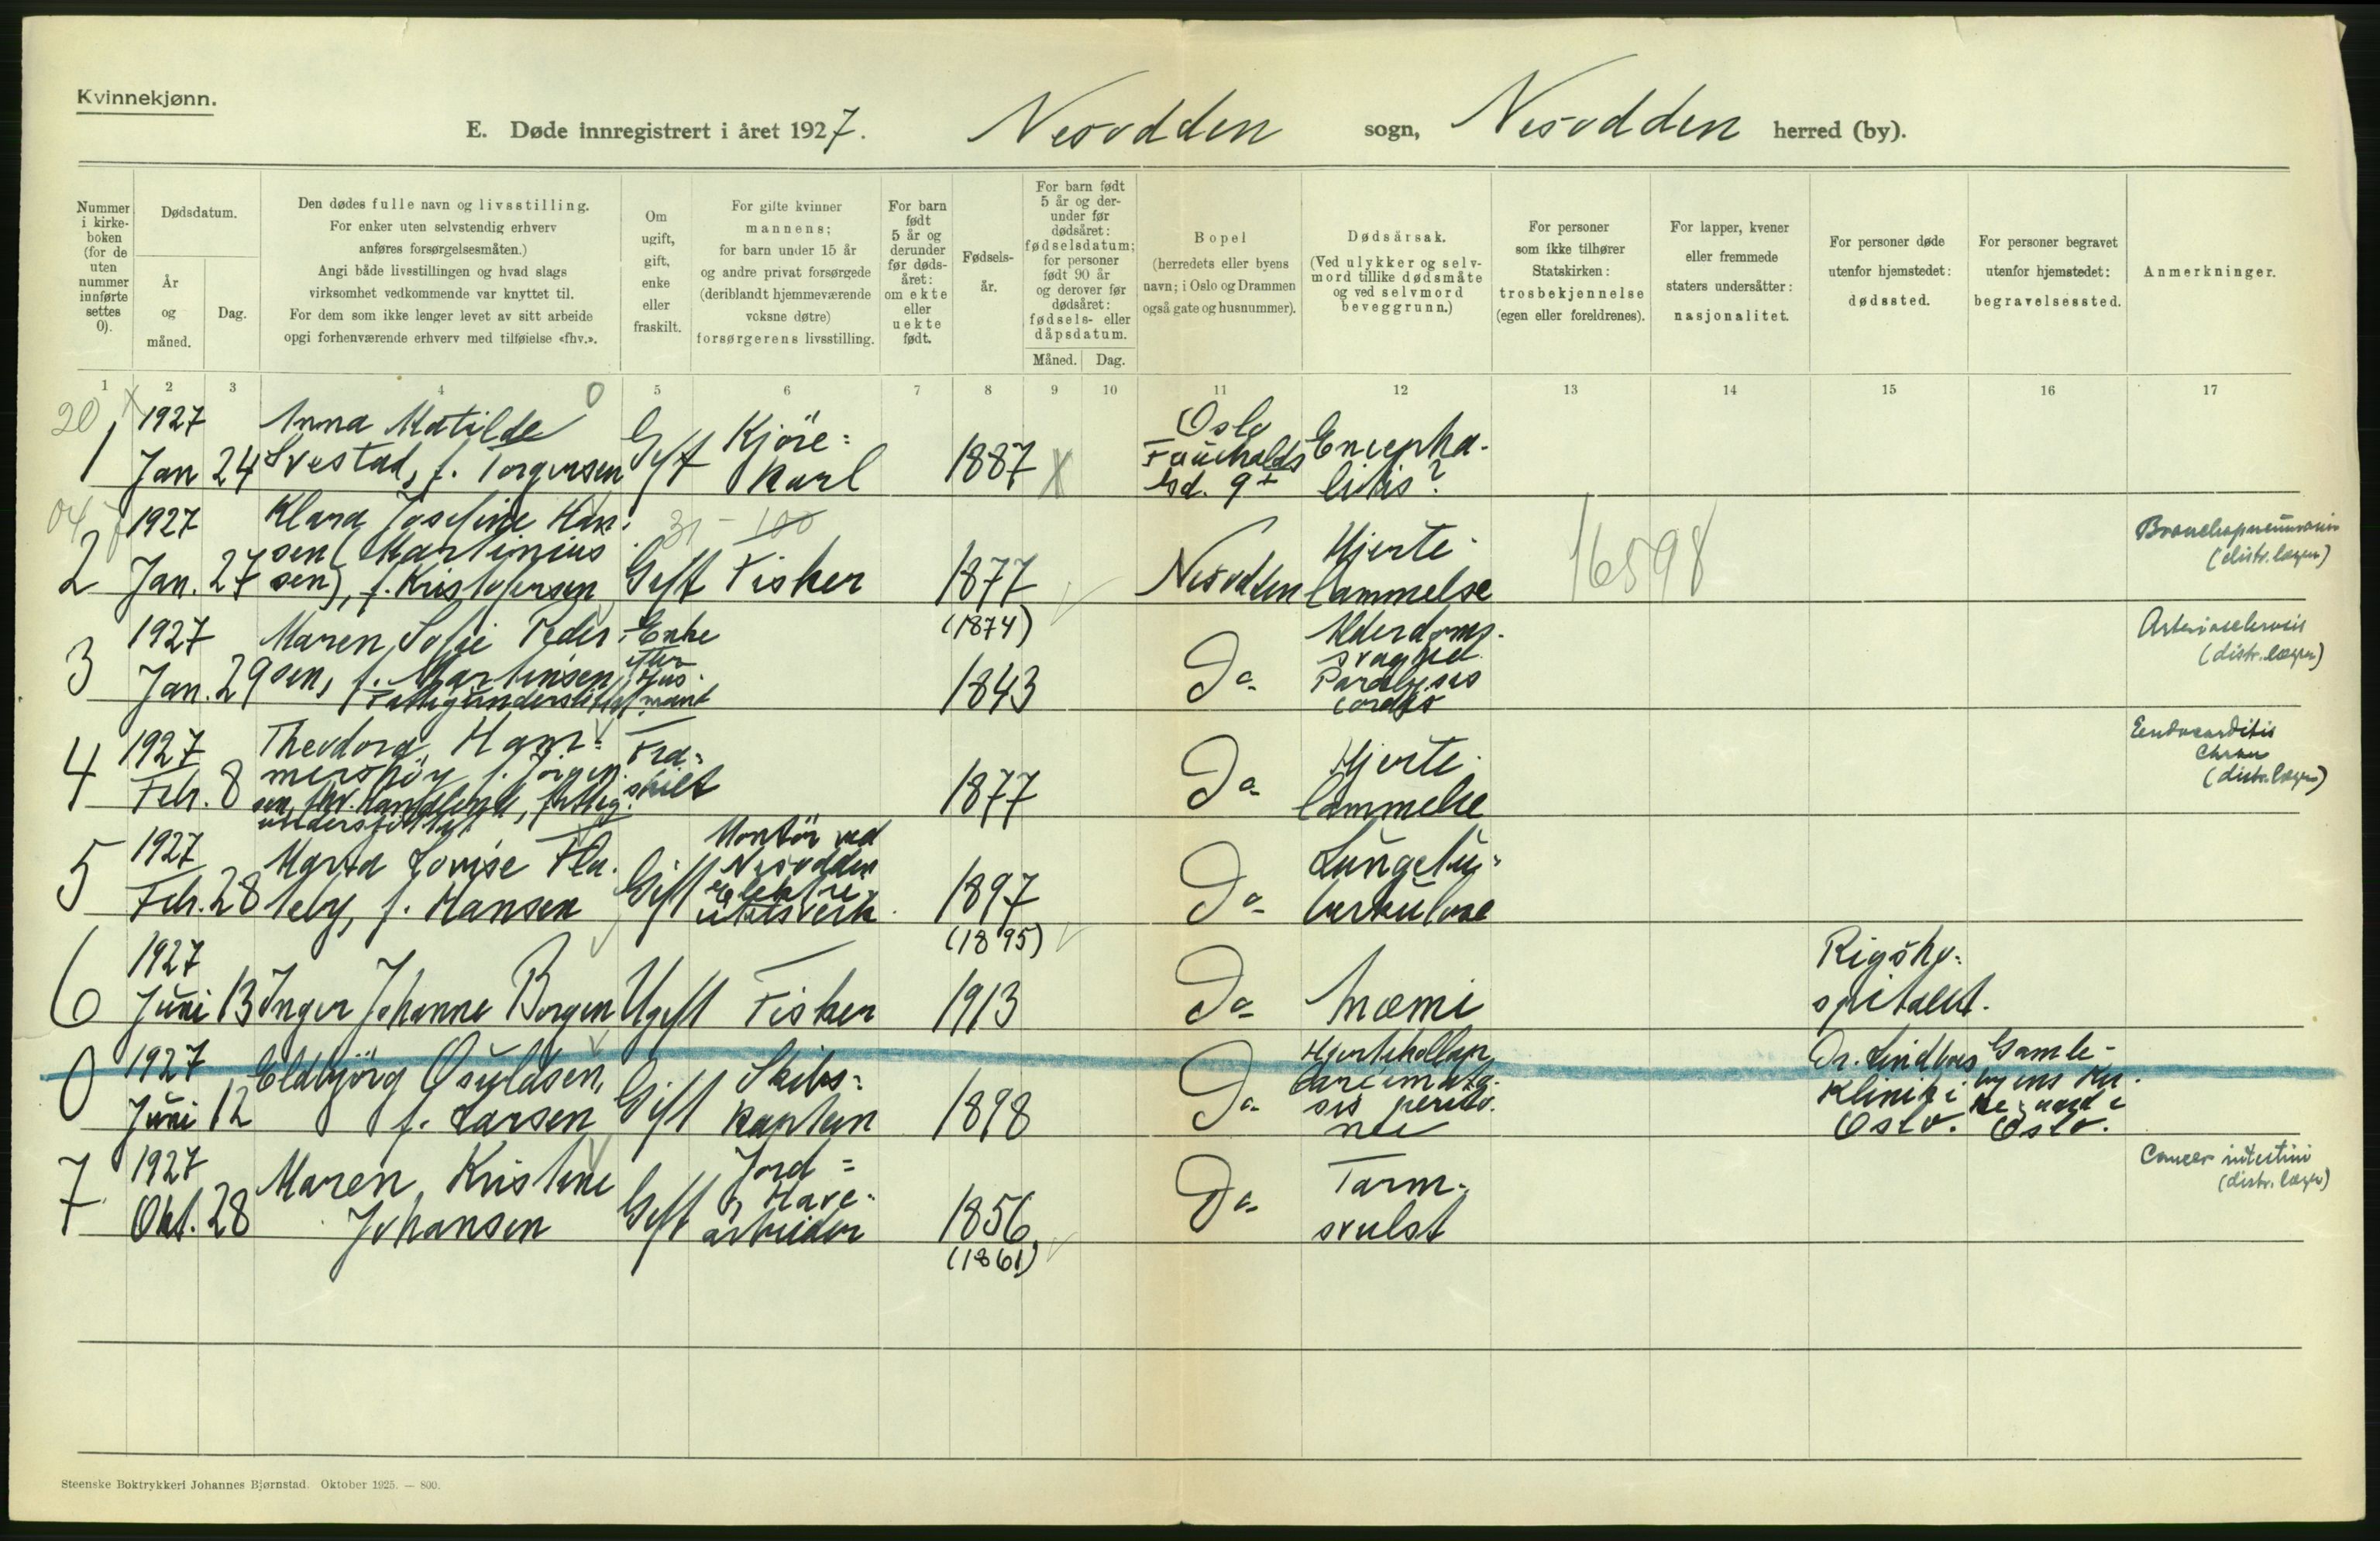 Kvinnekjønn.
E. Døde innregistrert i året 1927. Nesodden sogn, Nesodden herred (by).
Nummer i kirke-boken (for de uten nummer innførte settes 0).
Dødsdatum.
År og måned.
Dag.
Den dødes fulle navn og livsstilling.
For enker uten selvstendig erhverv
anføres forsørgelsesmåten.)
Angi både livsstillingen og hvad slags
virksomhet vedkommende var knyttet til.
For dem som ikke lenger levet av sitt arbeide
opgi forhenværende erhverv med tilføielse «fhv.».
Om ugift, gift, enke eller fraskilt.
For gifte kvinner
mannens;
for barn under 15 år
og andre privat forsørgede
(deriblandt hjemmeværende
voksne døtre)
forsørgerens livsstilling.
For barn født 5 år og derunder før døds-året: om ekte eller uekte født.
Fødsels-år.
For barn født
5 år og der-
under før
dødsåret:
fødselsdatum;
for personer
født 90 år
og derover før
dødsåret:
fødsels- eller
dåpsdatum.
Måned. Dag.
Bopel
(herredets eller byens
navn; i Oslo og Drammen
også gate og husnummer).
Dødsårsak.
(Ved ulykker og selv-
mord tillike dødsmåte
og ved selvmord
beveggrunn.)
For personer
som ikke tilhører
Statskirken:
trosbekjennelse
(egen eller foreldrenes).
For lapper, kvener
eller fremmede
staters undersåtter:
nasjonalitet.
For personer døde
utenfor hjemstedet:
dødssted.
For personer begravet
utenfor hjemstedet:
begravelsessted.
Anmerkninger.
1 2 3 4 5 6 7 8 9 10 11 12 13 14 15 16 17
20 X 0
1 1927 Jan 24
Anna Matilde
Svestad, f. Torgersen
Gift
Kjöre=
karl
1887 X
Oslo
gd. 9
Encepha-
litis?
04
2 1927 Jan. 27
Klara Josefine Han-
sen (Martinius
sen), f. Kristofersen
31 - 100
Gift Fisker
1877
(1874)
Nesodden
Hjerte-
lammelse
16598
Bronchopneumonia
(distr.lægen)
3 1927 Jan. 29
Maren Sofie Peder-
sen, f. Martinsen
Fattigunderstöttet
Enke
efter
Hus-
mand
1843
Do
Alderdoms-
svaghed
Paralysis
cordis
Arteriosclerosis
(distr.lægen)
4 1927 Febr. 8
Theodora Ham-
mershöy f. Jörgen-
sen, fhv. Handlende, fattig-
understöttet
Fra-
skilt
1877
Do
Hjerte-
lammelse
Endocarditis
chron
(distr.lægen)
5 1927 Febr. 28
Marta Lovise Fla-
teby, f. Hansen
Gift
Montör ved
Nesodden
Elektri-
citetsverk.
1897
(1895)
Do
Lungetu-
berkulose
6 1927 Juni 13
Inger Johanne Borgen
Ugift Fisker
1913
Do
Anæmi
Rigsho-
spitalet.
0 1927 Juni 12
Eldbjörg Osuldsen,
f. Larsen
Gift
Skibs-
kaptein
1898
Do
Hjertekollaps
Carcimato-
sis perito-
nei
Dr. Lindboes
Klinik i
Oslo.
Gamle-
byens Kir-
ke-gaard i
Oslo.
7 1927 Okt. 28
Maren Kristine
Johansen
Gift
Jord=
& Have-
arbeider
1856
(1861)
Do
Tarm-
svulst
Cancer intestini
(distr.lægen)
Steenske Boktrykkeri Johannes Bjørnstad. Oktober 1925. — 800.